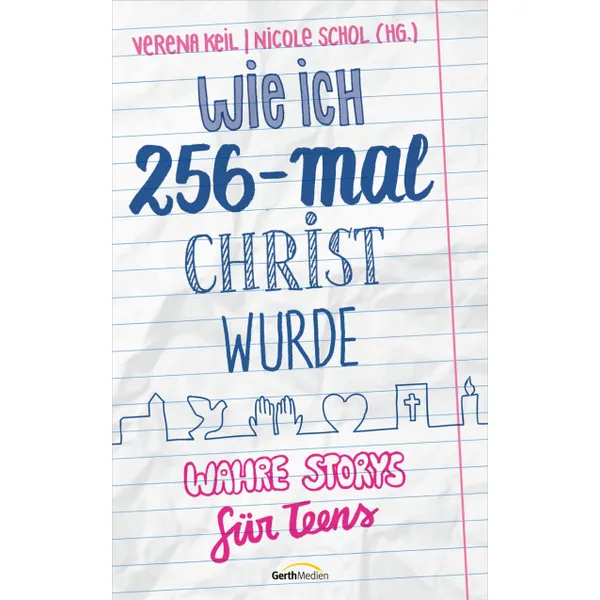 VERENA KEIL | NICOLE SCHOL (HG.)
WIE ICH
256-mal
CHRIST
WURDE
WAHRE STORYS
für Teens
GerthMedien